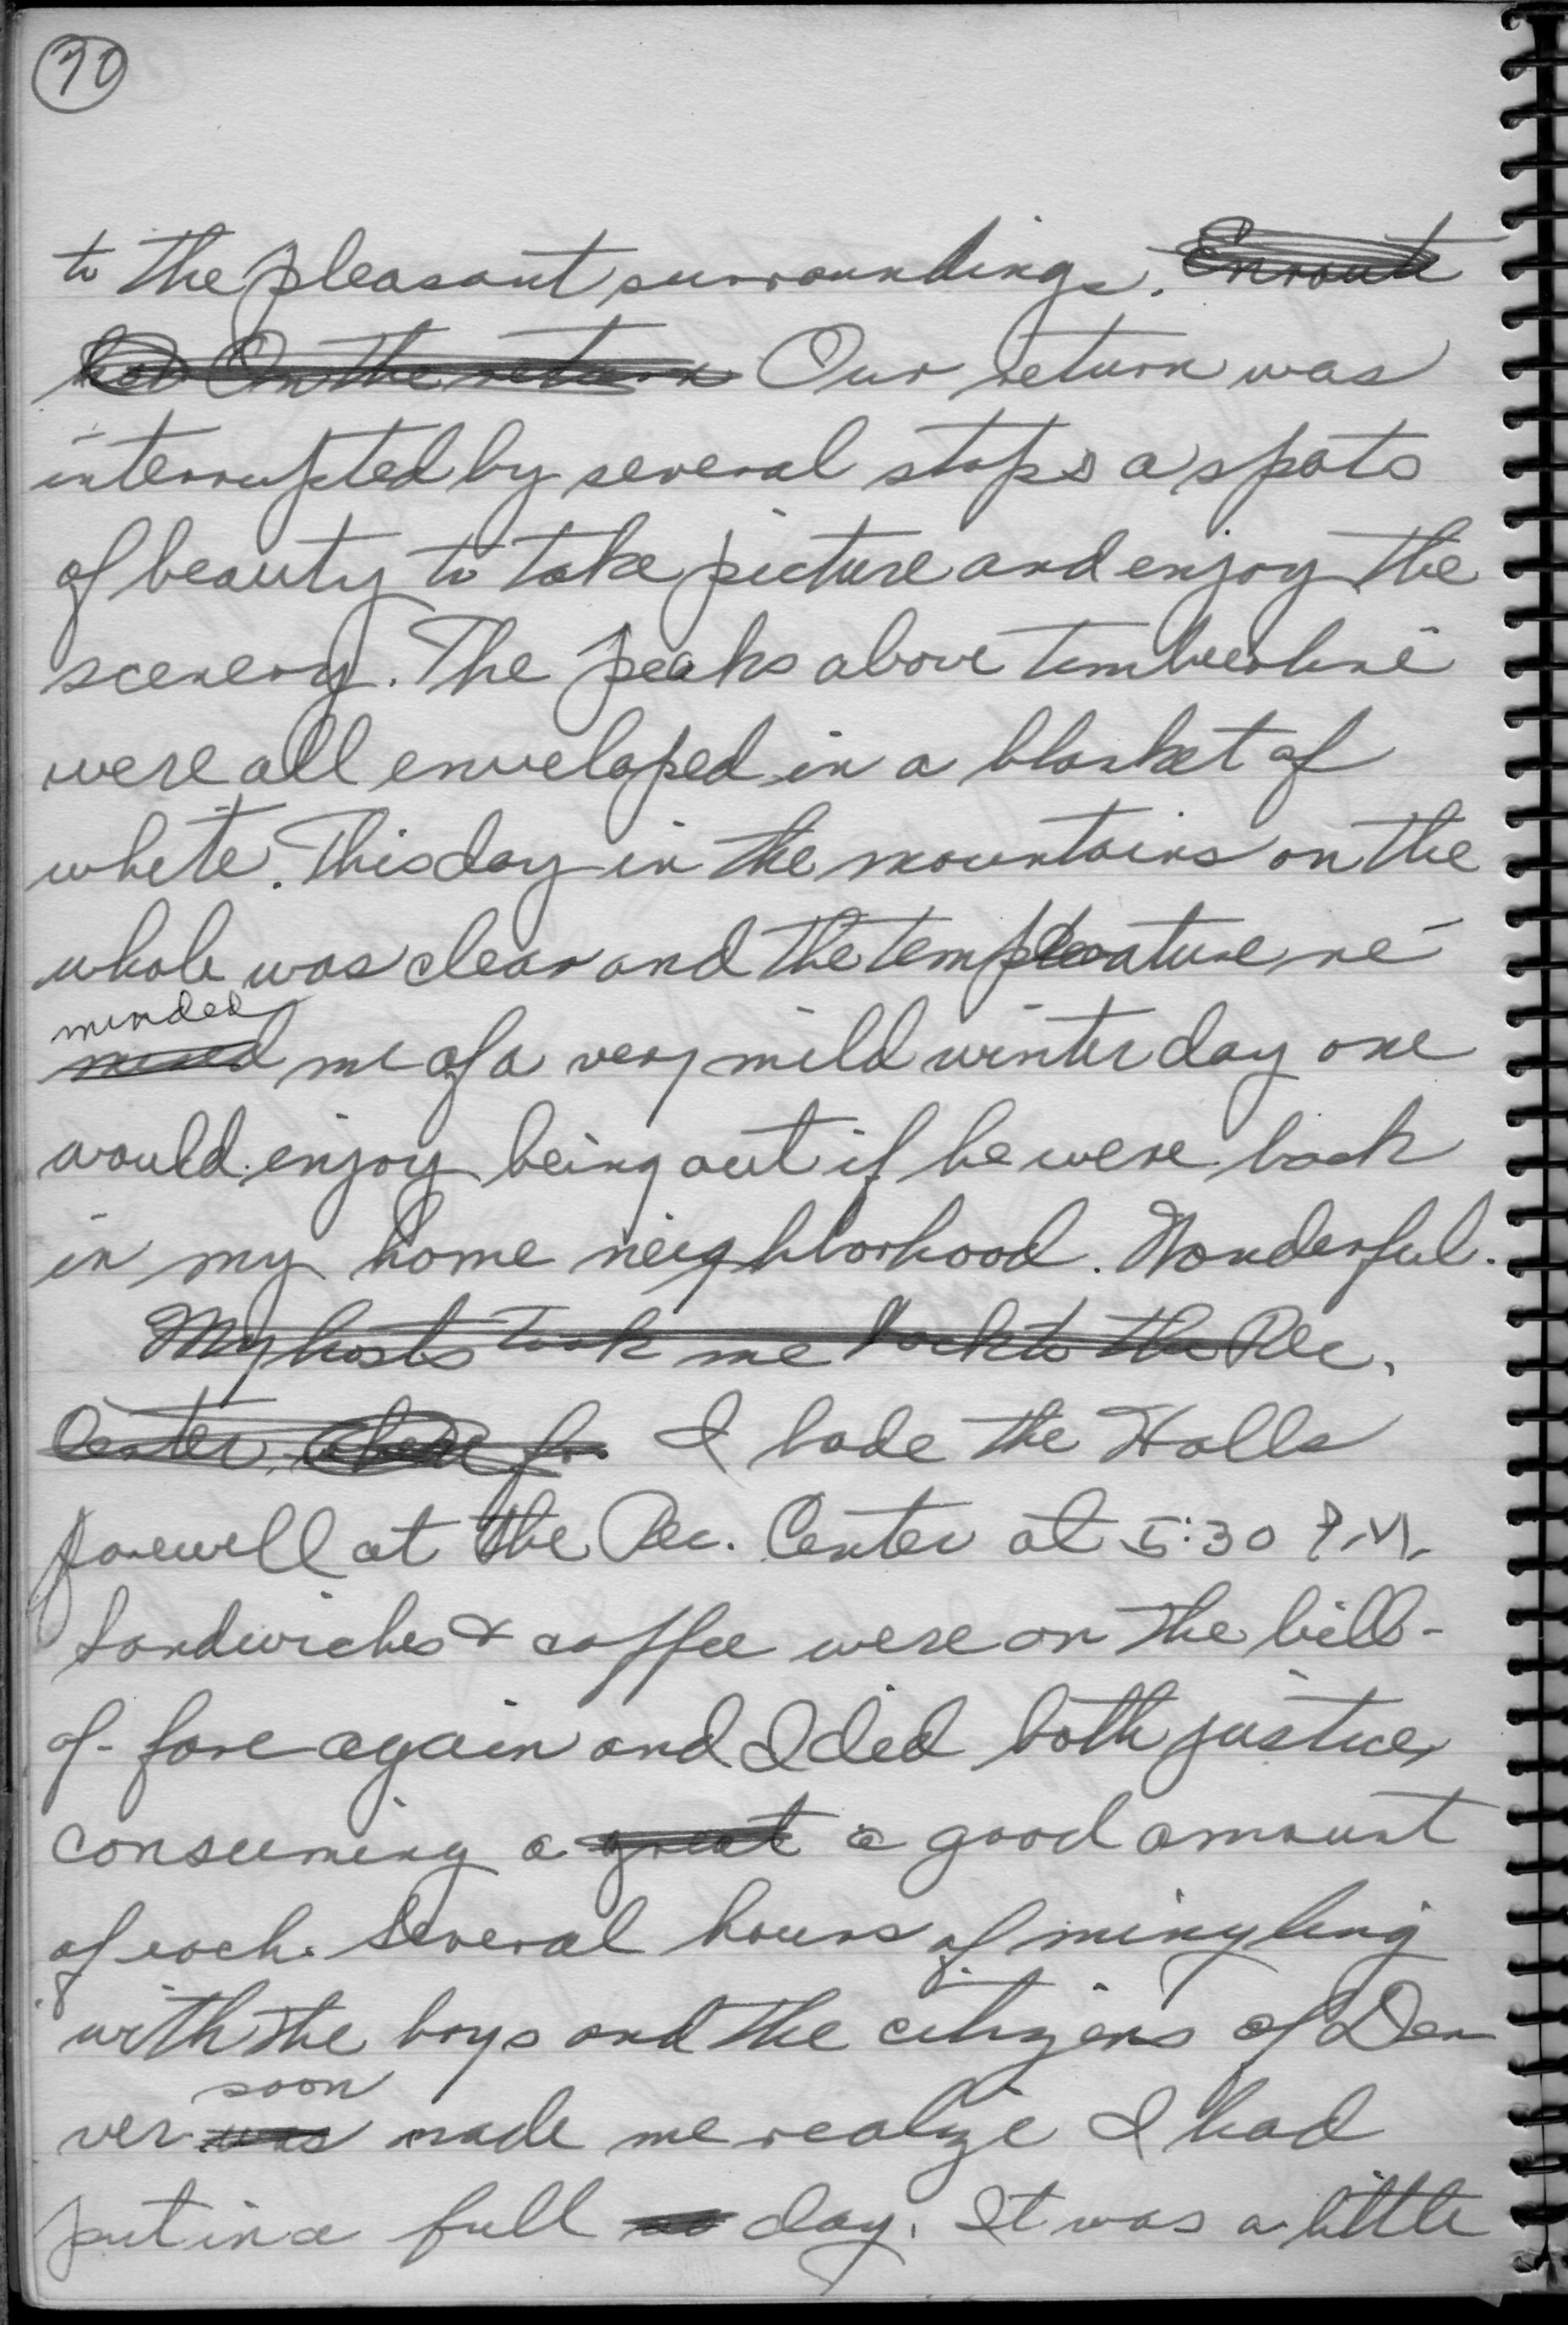 70
to the pleasant surroundings. Enroute
On the return Our return was
interrupted by several stops a spots
of beauty to take picture and enjoy the
scenery. The peaks above timberline
were all enveloped in a blanket of
white. This day in the mountains on the
whole was clear and the temperature re-
minded
me of a very mild winter day one
would enjoy being out if he were back
in my home neighborhood. Wonderful.
My hosts took me back to the Rec.
Center, where for I bade the Halls
farewell at the Rec. Center at 5:30 P.M.
Sandwiches & coffee were on the bill-
of-fare again and I did both justice,
consuming a great a good amount
of each. Several hours of mingling
with the boys and the citizens of Den
soon
ver was made me realize I had
put in a full day. It was a little